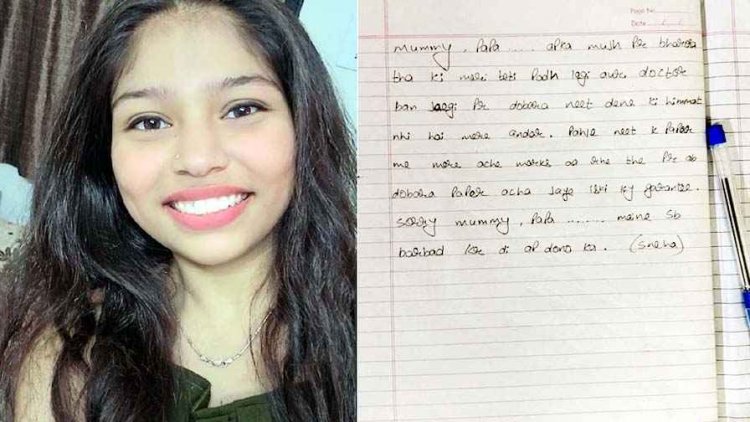 Page No.
Date
mummy, PaPa ..... apka mujh Pe bharosa
tha ki meri beti Padh legi aur doctor
ban jaegi Pr dobara neet dene ki himmat
nhi hai mere andar. Pahle neet k PaPer
me mere ache marks aa rhe the Pr ab
dobara PaPer acha jaye iski ky garantee.
sorry mummy, PaPa ....... maine sb
barbad kr di ap dono ka. (sneha)